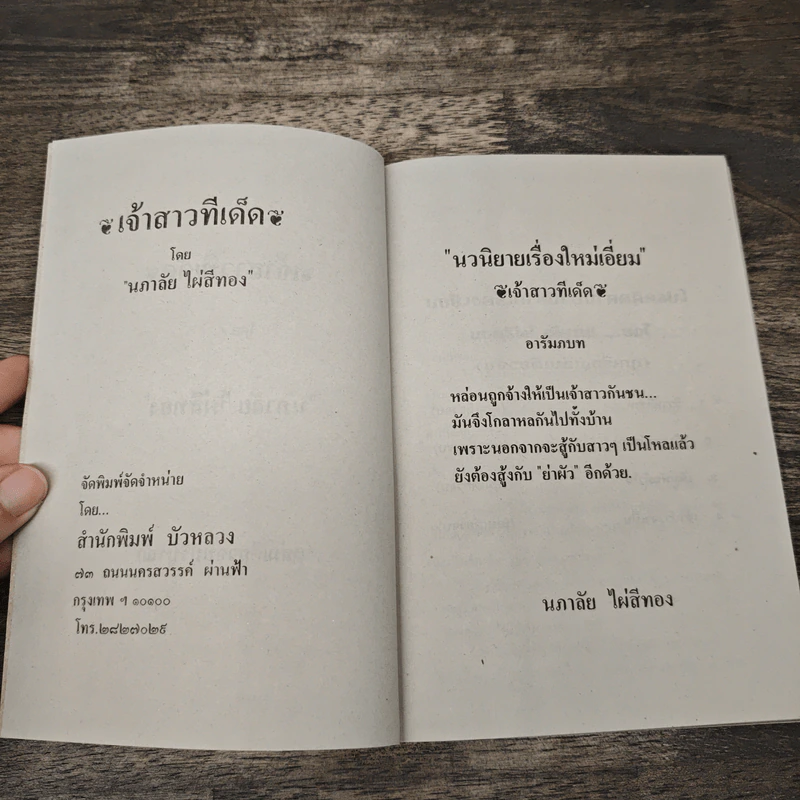 เจ้าสาวทีเด็ด
โดย
"นภาลัย ไผ่สีทอง"
จัดพิมพ์จัดจำหน่าย
โดย...
สำนักพิมพ์ บัวหลวง
๗๓ ถนนนครสวรรค์ ผ่านฟ้า
กรุงเทพ ฯ ๑๐๑๐๐
โทร.๒๘๒๗๐๒๙
"นวนิยายเรื่องใหม่เอี่ยม"
เจ้าสาวทีเด็ด
อารัมภบท
หล่อนถูกจ้างให้เป็นเจ้าสาวกันชน...
มันจึงโกลาหลกันไปทั้งบ้าน
เพราะนอกจากจะสู้กับสาวๆ เป็นโหลแล้ว
ยังต้องสู้งกับ "ย่าผัว" อีกด้วย.
นภาลัย ไผ่สีทอง